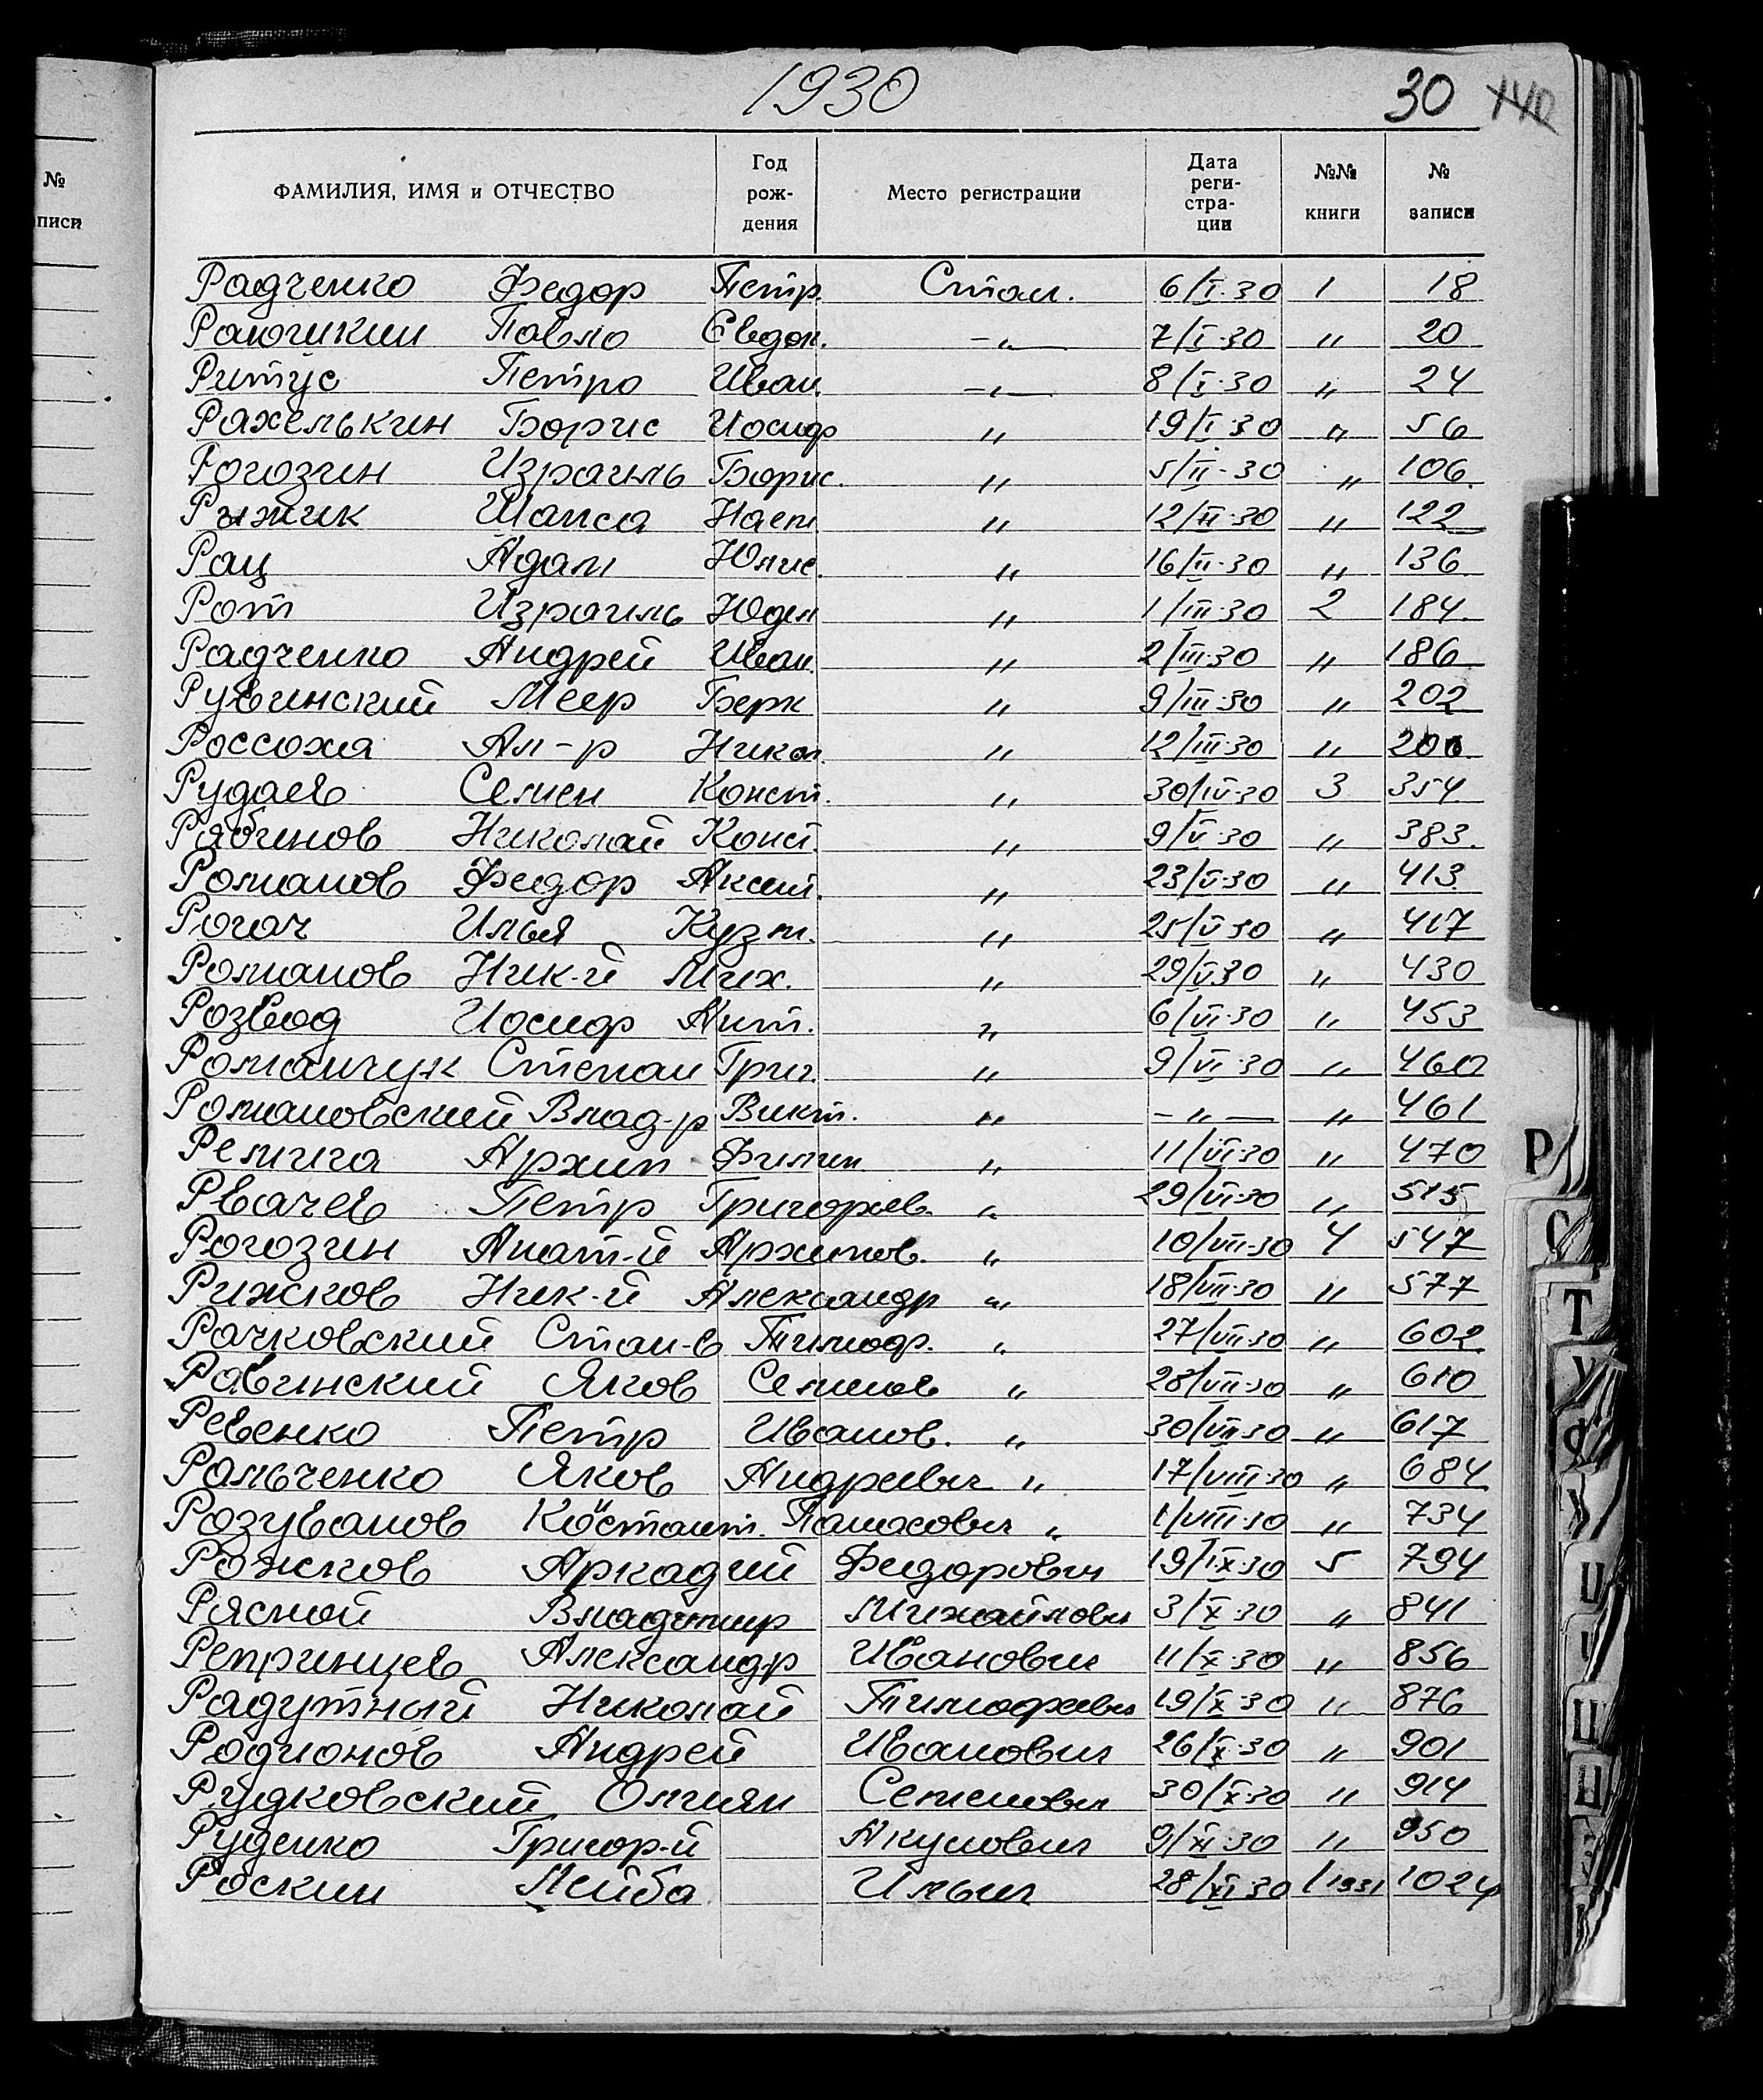 1930
30 140
№ записи
ФАМИЛИЯ, ИМЯ и ОТЧЕСТВО Год рож- дения Место регистрации Дата реги- стра- ции №№ книги № записи
Радченко Федор Петр. Стал. 6/I.30 1 18
Павло Евдок. -„- 7/I.30 „ 20
Ритус Петро Иван. -„- 8/I.30 „ 24
Рахелькин Борис Иосиф „ 19/I.30 „ 56
Рогозин Израиль Борис. „ 5/II-30 „ 106
Рыжик Шапса „ 12/II.30 „ 122
Рац Адам Юлис. „ 16/II.30 „ 136
Рот Израиль Юдел „ 1/III.30 2 184
Радченко Андрей Иван. „ 2/III.30 „ 186
Рувинский Меер Берк „ 9/III.30 „ 202
Россоха Ал-р Никол. „ 12/III.30 „
Рудаев Семен Конст. „ 30/IV.30 3 354
Рябинов Николай Конст. „ 9/V.30 „ 383
Романов Федор Аксен. „ 23/V.30 „ 413
Рогач Илья Кузм. „ 25/V.30 „ 417
Романов Ник-й Мих. „ 29/V.30 „ 430
Розвод Иосиф Ант. „ 6/VI.30 „ 453
Романчук Степан Григ. „ 9/VI.30 „ 460
Романовский Влад-р Викт. „ -„- „ 461
Ремига Архип Филип „ 11/VI.30 „ 470
Рвачев Петр Григорьев. „ 29/VI.30 „ 515
Рогозин Анат-й Архипов. „ 10/VII.30 4 547
Рижков Ник-й Александр „ 18/VII.30 „ 577
Рачковский Стан-в Тимоф. „ 27/VII.30 „ 602
Равинский Яков Семенов „ 28/VII.30 „ 610
Ревенко Петр Иванов. „ 30/VII.30 „ 617
Ральченко Яков Андреевич „ 17/VIII.30 „ 684
Розуванов Констант. Панасович „ 1/VIII.30 „ 734
Рожков Аркадий Федорович 19/IX.30 5 794
Рясной Владимир Михайлович 3/X.30 „ 841
Репринцев Александр Иванович 11/X.30 „ 856
Радутный Николай Тимофеевич 19/X.30 „ 876
Родионов Андрей Иванович 26/X.30 „ 901
Рудковский Омелян Семенович 30/X.30 „ 914
Руденко Григор-й Акулович 9/XI.30 „ 950
Роскин Лейба Ильич 28/XI.30 1/1931 1024
Р
С
Т
У
Ф